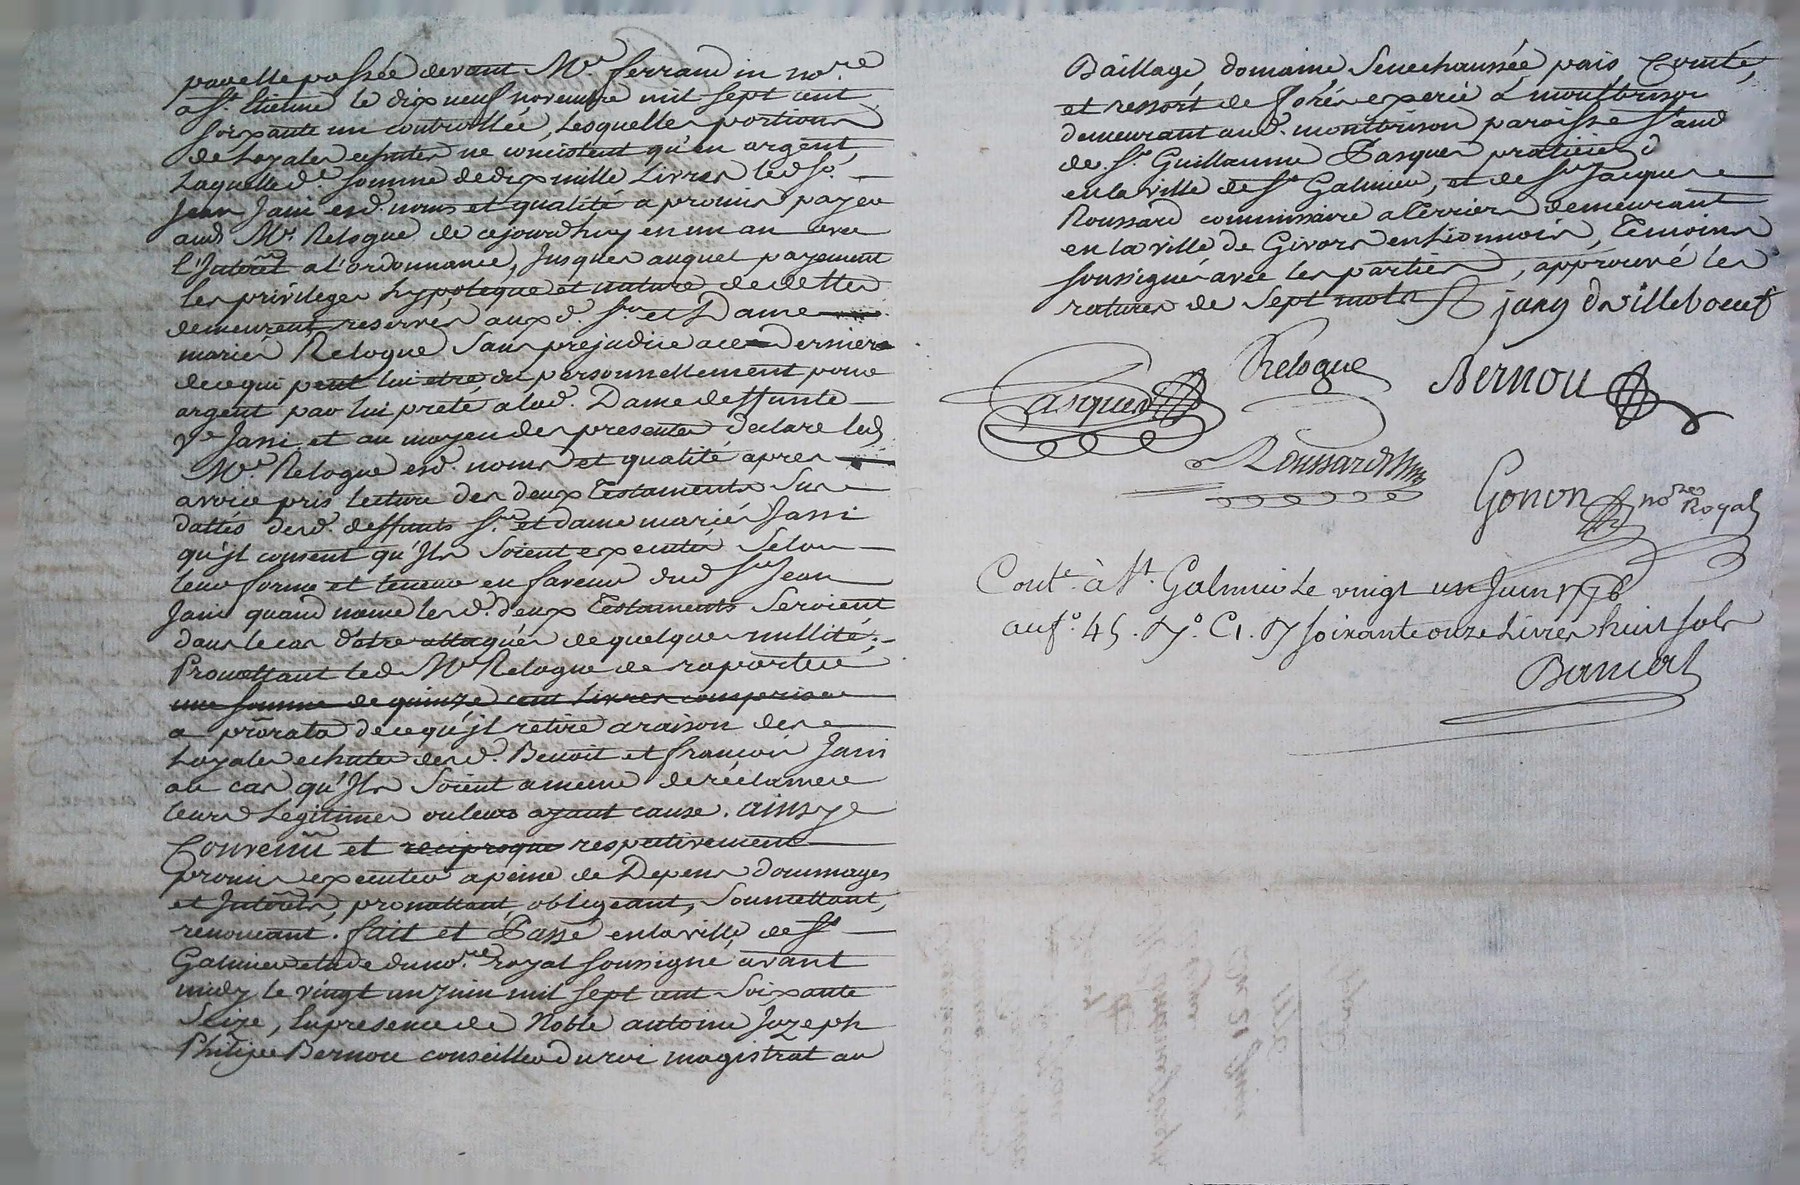 par elle passée devant Me ferrand in nore
a St Etienne le dix neuf novembre mil sept cent
soixante un controllée, Lesquelles portions
de hoyales echutes ne concistent qu'en argent,
Laquelle de somme de dix mille Livres led Sr
Jean Jani esd. noms et qualité a promis payer
aud Me Relogue de cejourdhuy en un an avec
l'Interêt a l'ordonnance, Jusques auquel payement
les privileges hypoteque et nature de dettes
demeurent reservés auxd. Sr et Dame
mariés Relogue Sans prejudice a ce Dernier
de ce qui peut lui etre du personnellement pour
argent par lui preté a lad. Dame deffunte
ve Jani et au moyen des presentes declare led
Me Relogue esd. noms et qualité apres
avoir pris lecture des deux Testaments Sus
dattés desd. deffunts Sr et dame mariés Jani
qu'jl consent qu'Jls Soient executés Selon
leur forme et teneur en faveur dud Sr Jean
Jani quand meme lesd. deux Testaments Seroient
dans le cas d'etre attaqués de quelques nullité;
Promettant led Me Relogue de raporter
une somme de quinze cent Livres comprise
a prorata de ce qu'jl retire a raison des
hoyales echutes desd. Benoit et francois Jani
au cas qu'Jls Soient a meme de réclamer
leurs Legitimes ou leurs ayant cause. ainsy
Convenû et reciproque respectivement
promis executer a peine de Depens dommages
et Interêts, promettant, obligeant, Soumettant,
renonceant. fait et Passé en la ville de St
Galmier etude du nore. royal Soussigné avant
midy le vingt un Juin mil Sept cent Soixante
Seize, En presence de Noble antoine Jozeph
Philipe Bernou conseiller du roi magistrat au
Baillage domaine Senechaussée païs, Comté,
et ressort de forés exercé a montbrison
demeurant aud. montbrison paroisse St and
de Sr Guillaume Pasques praticien
en la ville de St Galmier, et de Sr Jacques
Roussard commissaire a terrier demeurant
en la ville de Givors en Lionnois, Temoins
Soussignés avec les parties, approuvé les
ratures de Sept mots janÿ dvilleboeuf
Relogue
Bernou
Pasques
Roussard
Gonon nores Royal
Cont.e à St. Galmier Le vingt un Juin 1776
au fo. 45. Vo. C1. R soixante onze Livres huit sols